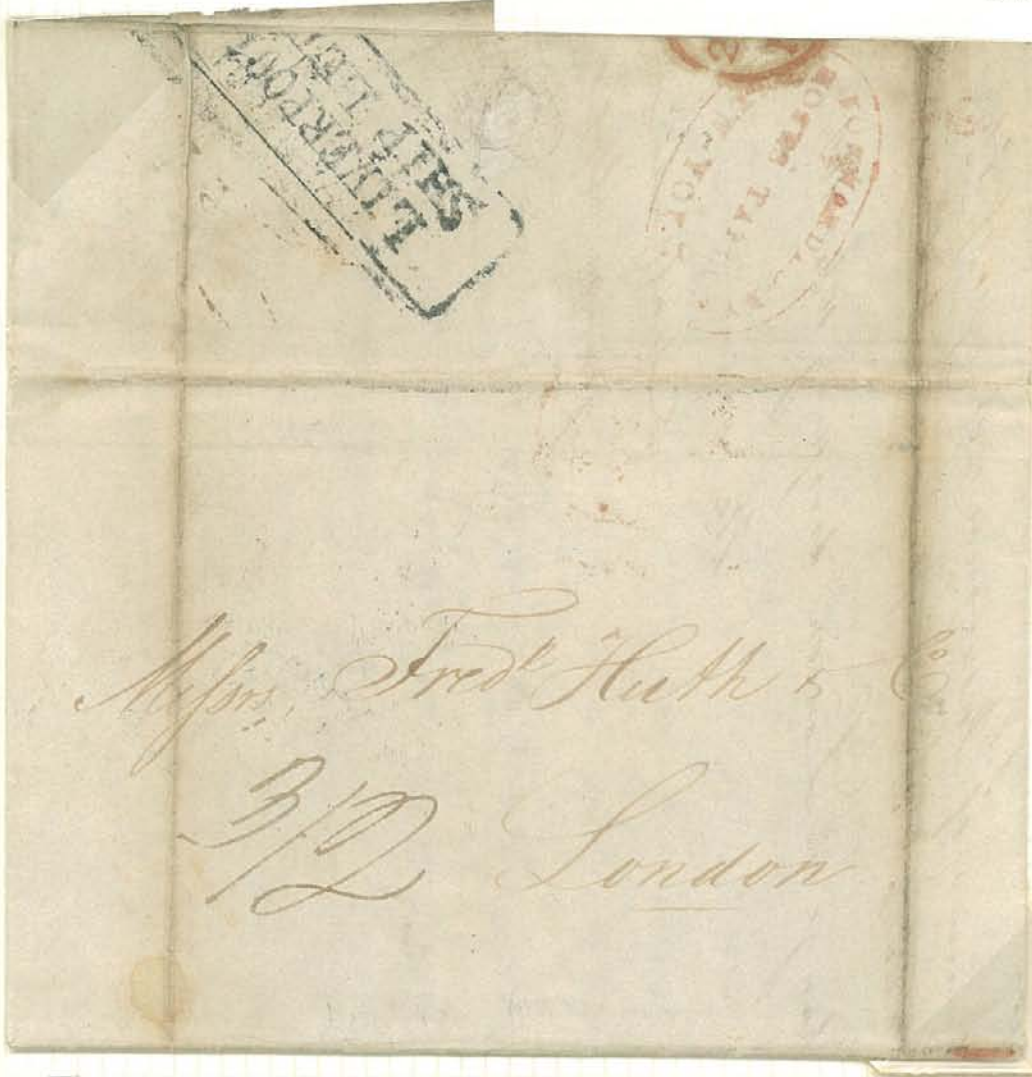 LIVERPOOL
SHIP LE
2
NEW-YOR
Messrs, Fredk Huth & Co
3/2
London